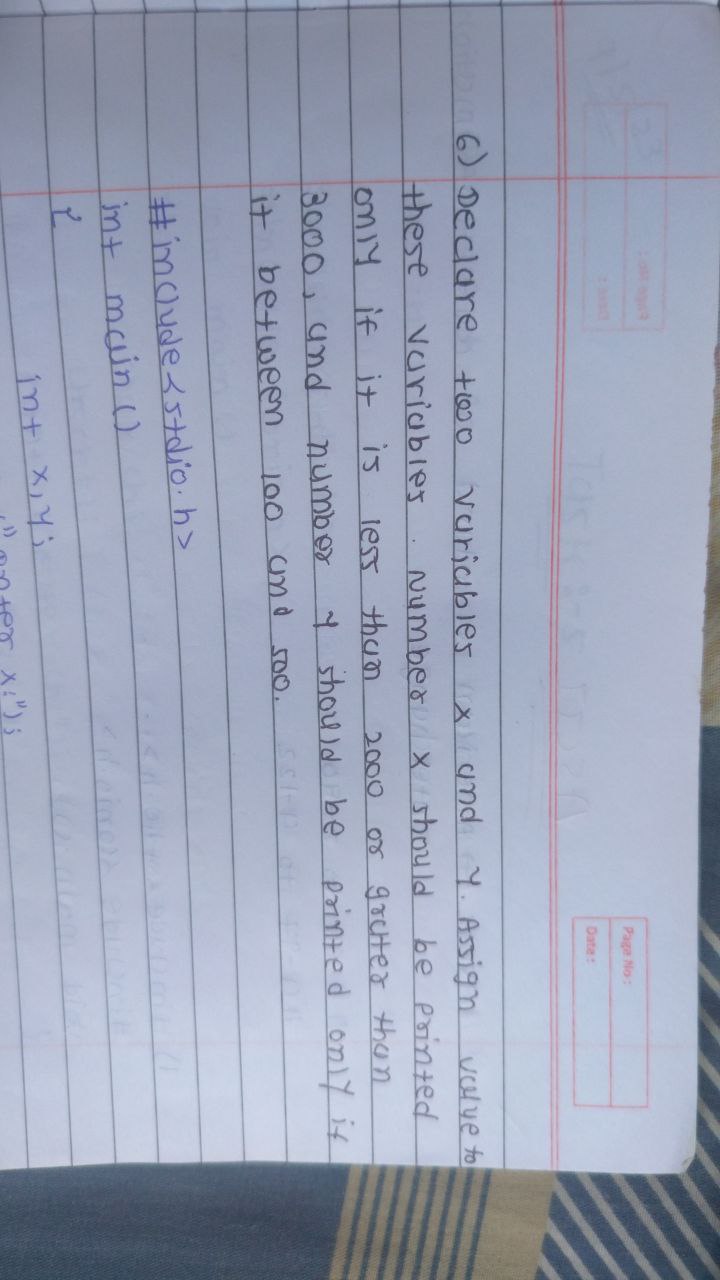 Page No:
Date:
6) Declare two variables x and y. Assign value to
these variables. Number x should be printed
only if it is less than 2000 or greter than
3000, and number y should be printed only if
it between 100 and 500.
#include<stdio.h>
int main()
{
int x,y;
"enter x:");